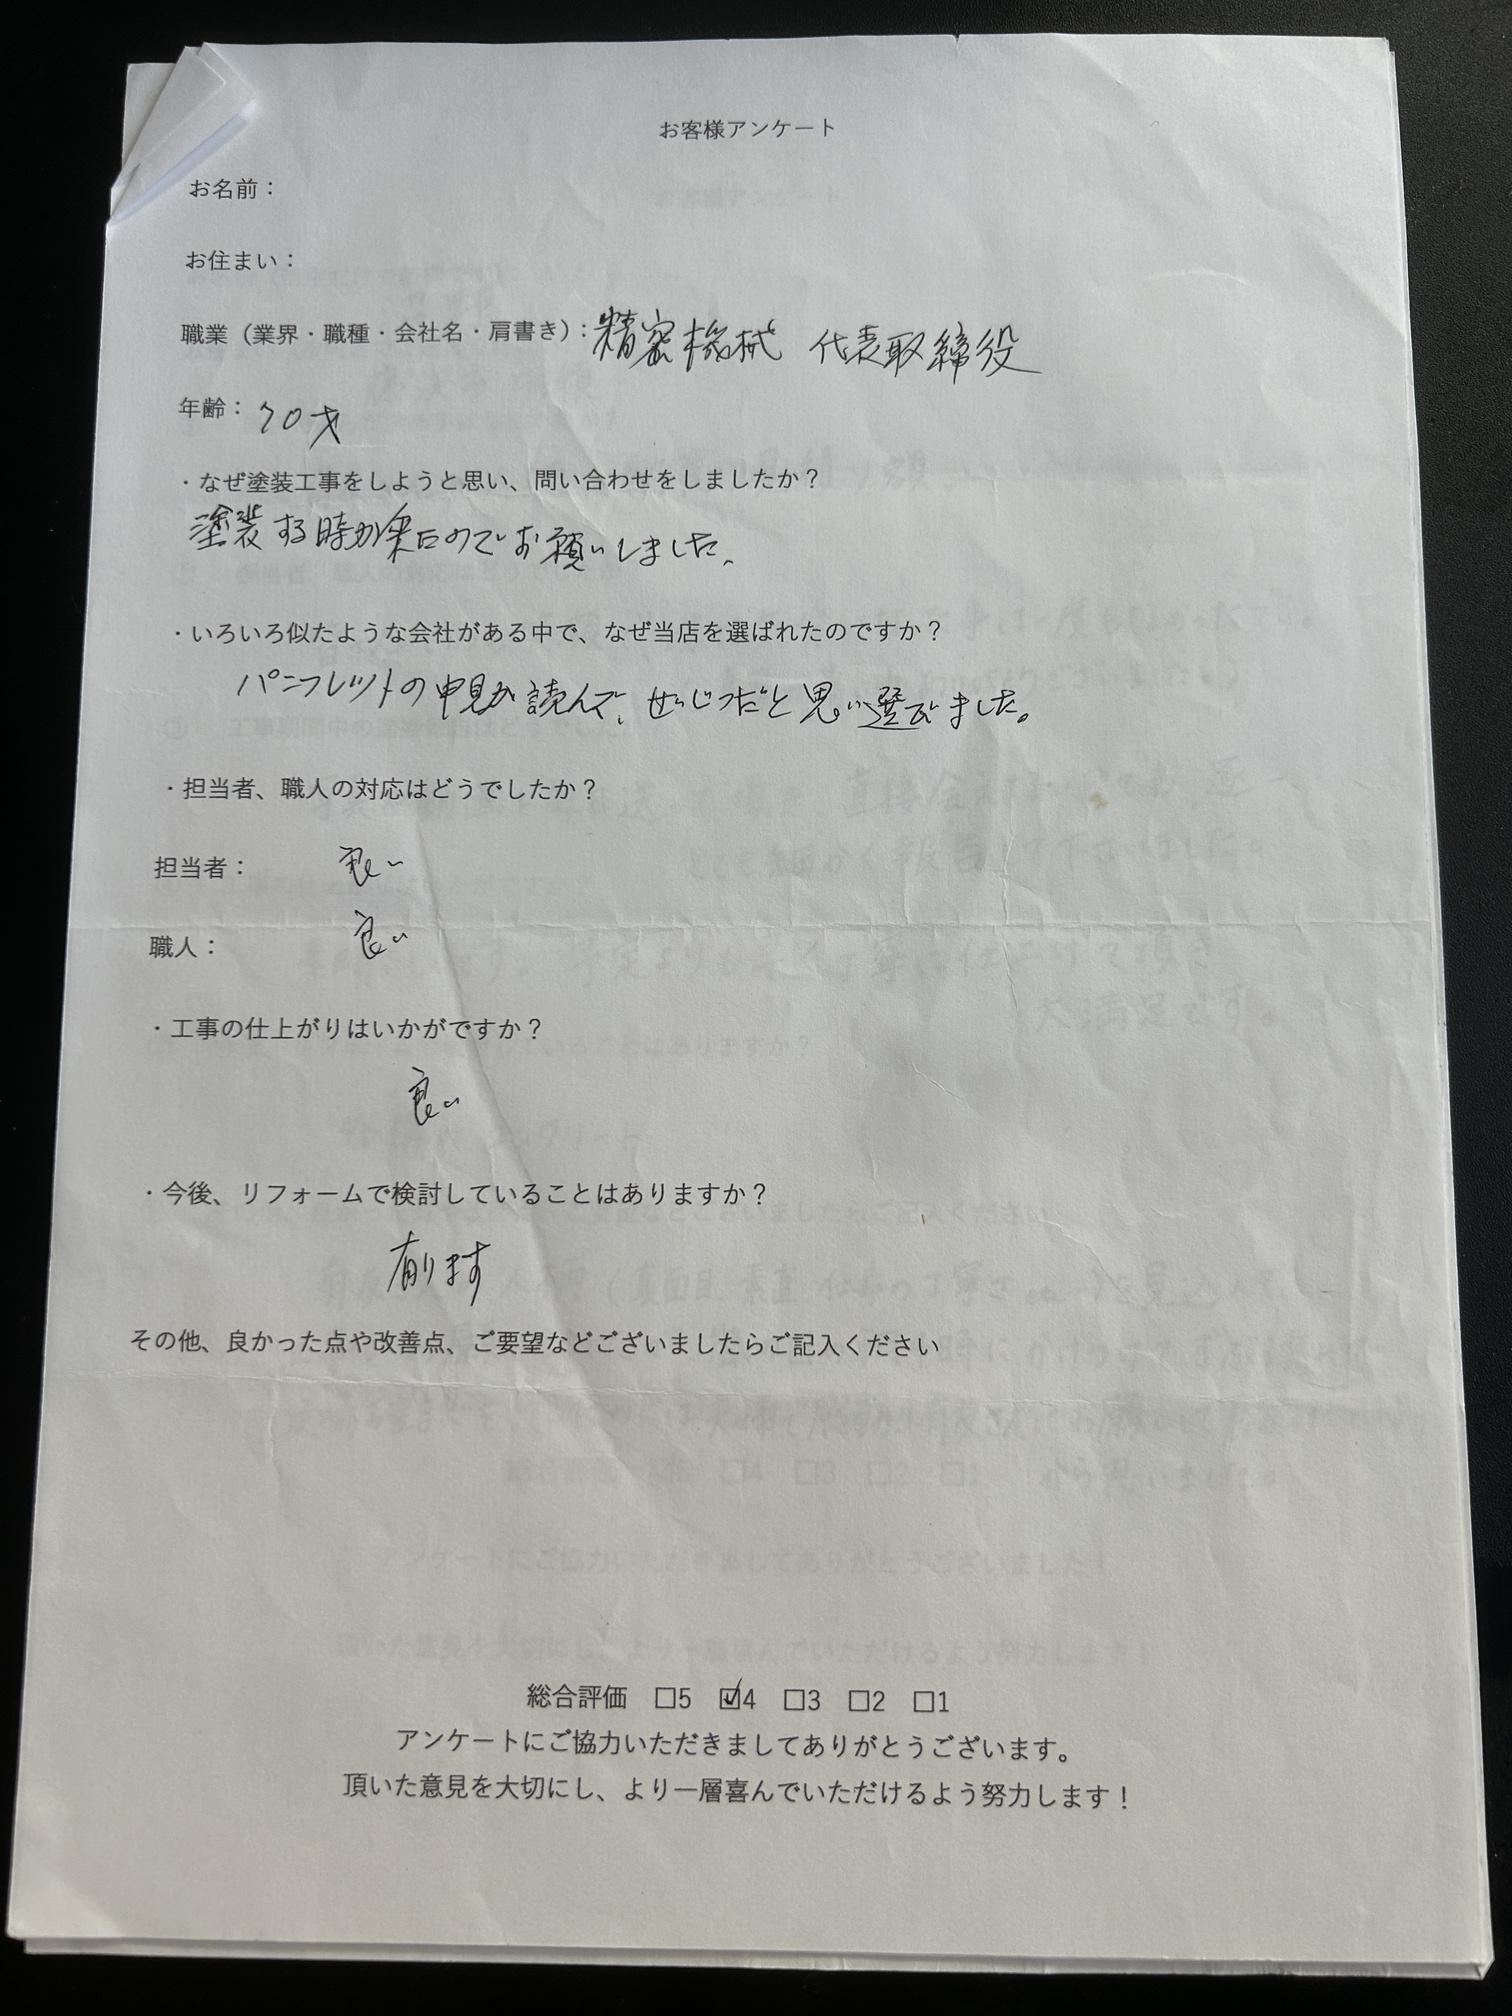 お客様アンケート
お名前：
お住まい：
職業（業界・職種・会社名・肩書き）：精密機械 代表取締役
年齢：70才
・なぜ塗装工事をしようと思い、問い合わせをしましたか？
塗装する時が来たのでお願いしました。
・いろいろ似たような会社がある中で、なぜ当店を選ばれたのですか？
パンフレットの中身が読んで、せいじつだと思い選びました。
・担当者、職人の対応はどうでしたか？
担当者： 良い
職人： 良い
・工事の仕上がりはいかがですか？
良い
・今後、リフォームで検討していることはありますか？
有ります
その他、良かった点や改善点、ご要望などございましたらご記入ください
総合評価 □5 ☑4 □3 □2 □1
アンケートにご協力いただきましてありがとうございます。
頂いた意見を大切にし、より一層喜んでいただけるよう努力します！